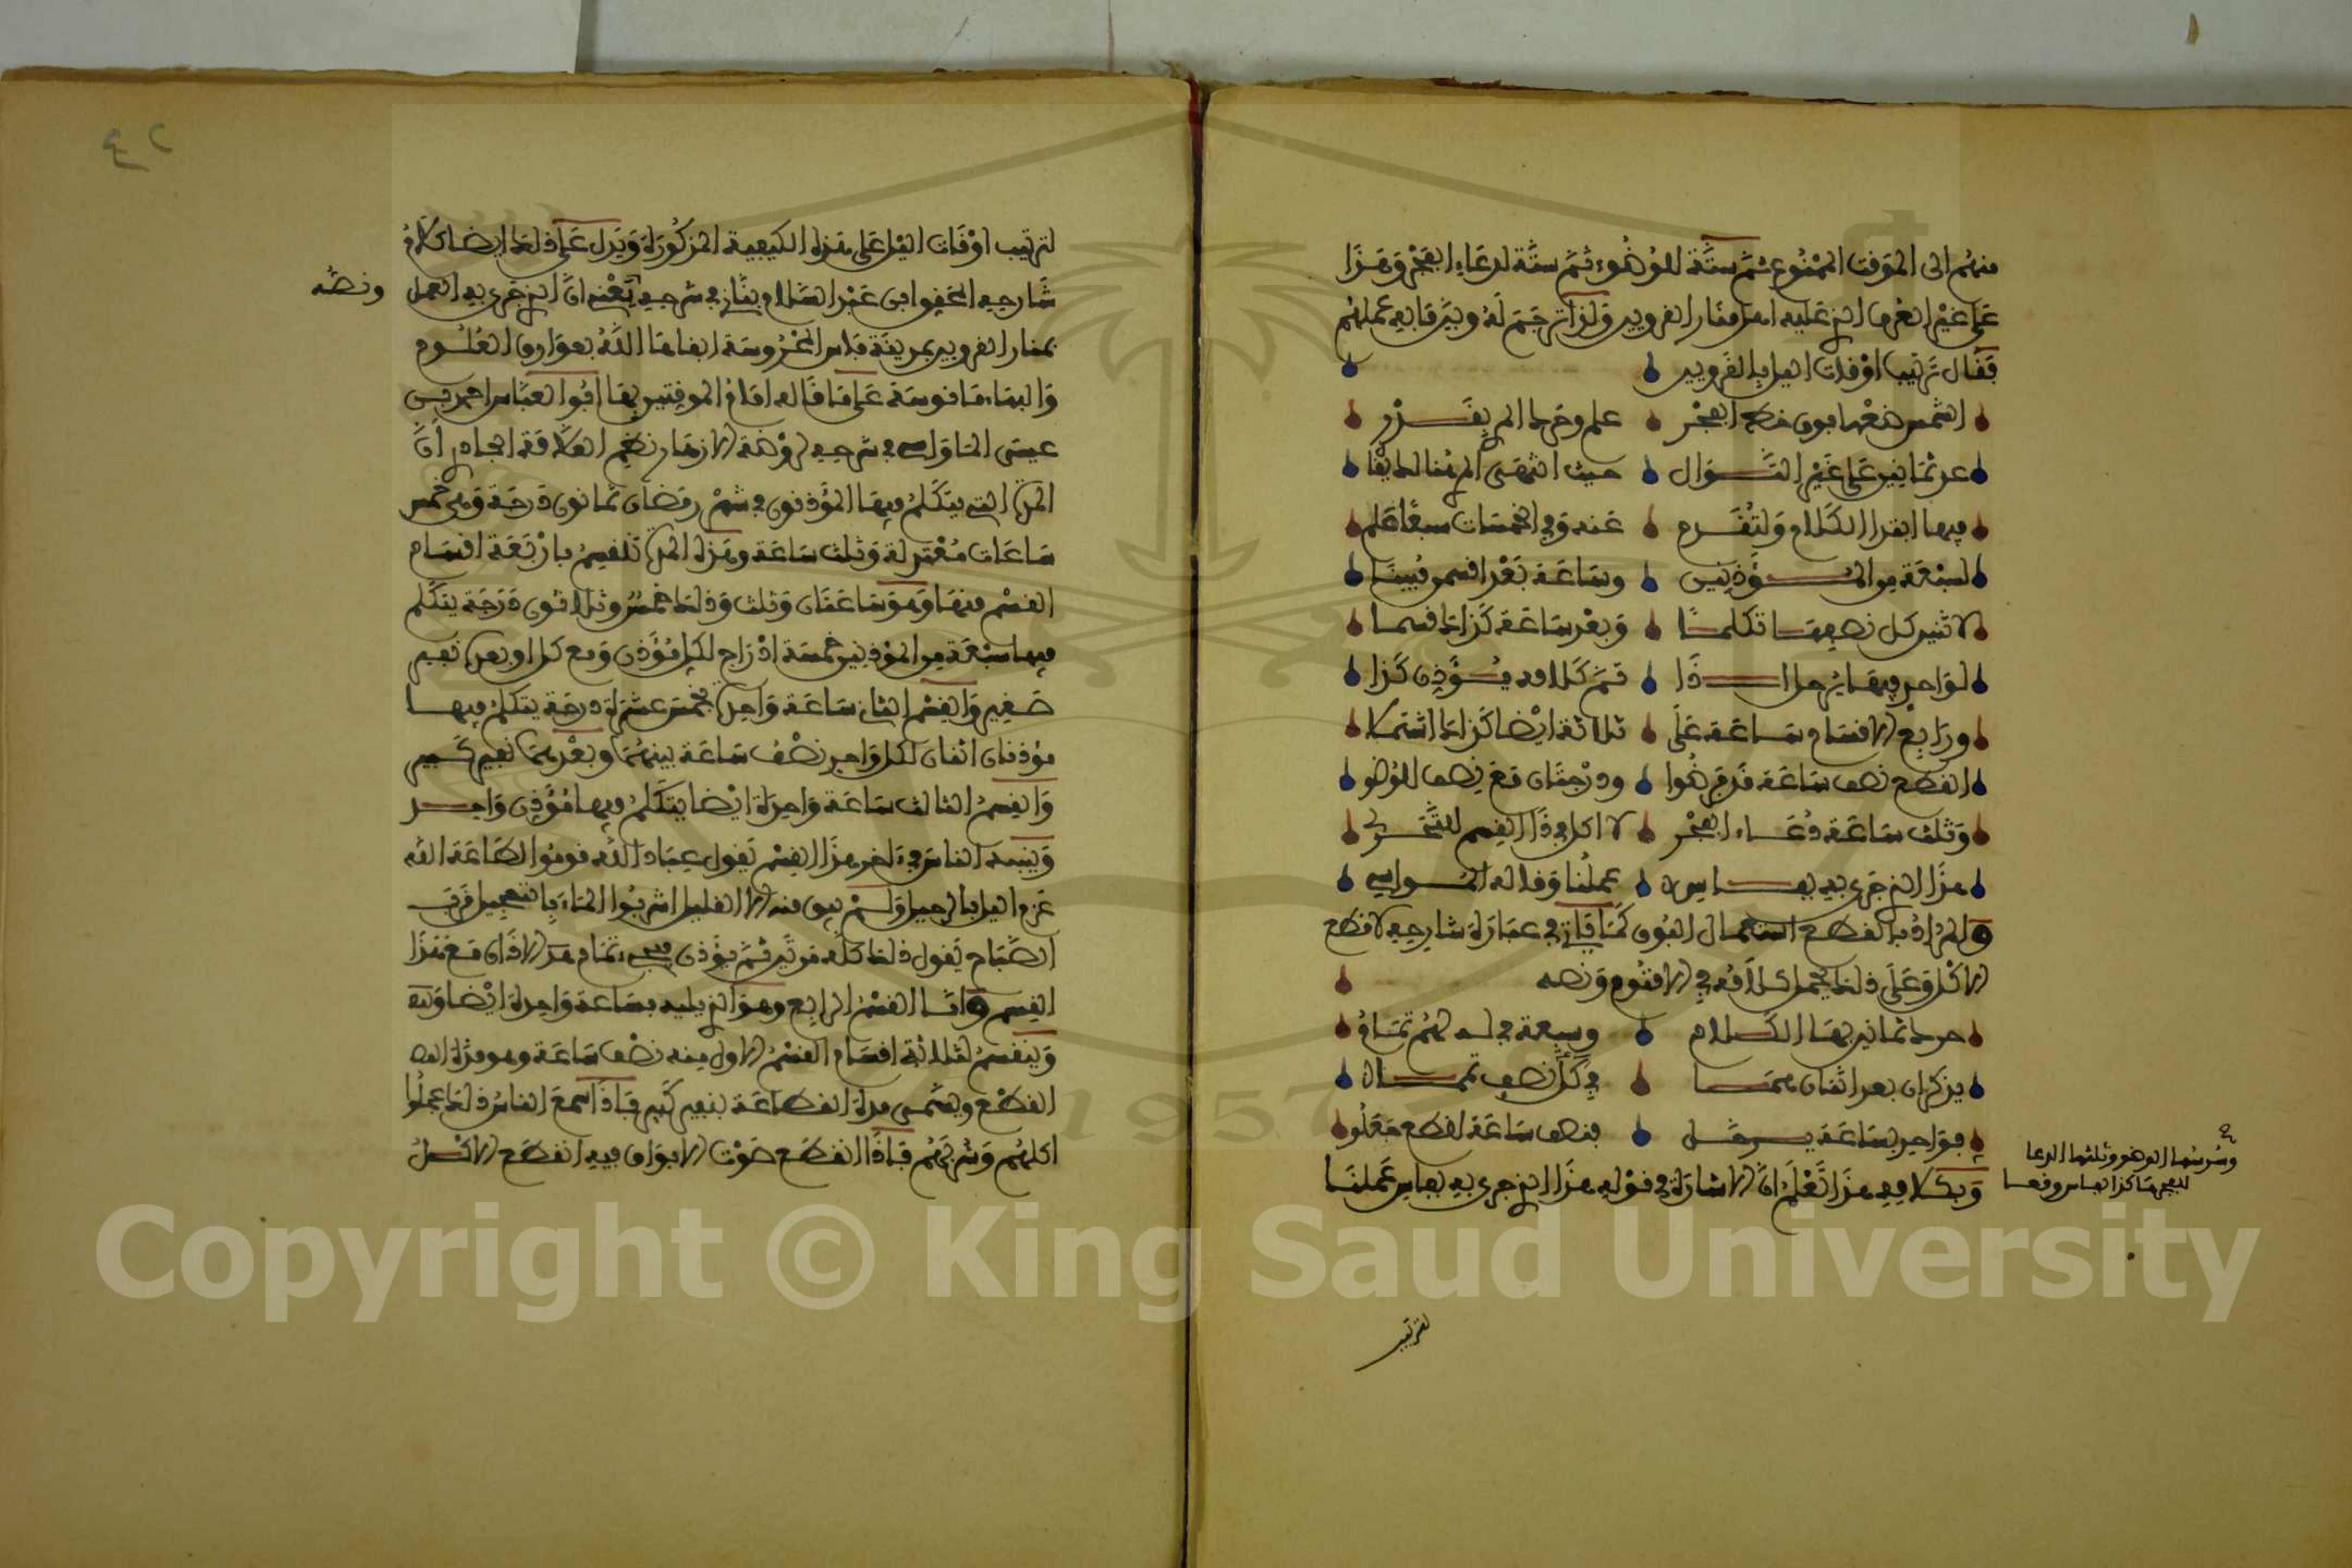 منهم الى الموقت الممنوع ثم ستة للوضوء ثم ستة لدعاء الفجر وهذا
على غير العرف الذي عليه اهل منار القرويين ولذا ترجم له وبين ما به عملهم
فقال ترتيب اوقات الليل بالقرويين
الشمس ضعها فوق خط الفجر علم وحرك
عد ثمانين على غير التوال حيث انتهى المرئى
فيها ابتدا الكلام ولتقسم عنه وفي الخمسات سبعا علم
لسبعة من المؤذنين وساعة بعد اقسمن
لاثنين كل نصفها تكلما وبعد ساعة كذاك قسما
لواحد فيها ثم كلامه يؤذن كذا
ورابع الاقسام ساعة على ثلاثة ايضا كذاك اشتملا
القطع نصف ساعة ودرجتان مع نصف للوضو
وثلث ساعة دعاء الفجر لا اكل في ذا القسم للتحري
هذا الذي جرى به بفاس عملنا وقاله الماواسي
والمراد بالقطع استعمال البوق كما ياتي في عبارة شارحه لا قطع
الاكل وعلى ذلك يحمل كلامه في الاقنوم ونصه
حرك ثمانين بها الكلام وسبعة في له تمام
يذكران بعد اثنان هما في كل نصف
فواحد بساعة فنصف ساعة لقطع جعلوا
وسدسها الوضو وثلثها الدعا
للفجر هاكذا بفاس وقعا
وبكلامه هذا تعلم ان الاشارة في قوله هذا الذي جرى به بفاس عملنا
لترتيب
٤٢
لترتيب اوقات الليل على هذه الكيفية المذكورة ويدل على ذلك ايضا كلام
شارحه ابن عبد السلام بناني في شرحه يعني ان الذي جرى به العمل ونصه
بمنار القرويين بمدينة فاس المحروسة ابقاها الله بعوارف العلوم
والبهاء مانوسة على ما قاله امام الموقتين بها ابو العباس احمد بن
عيسى الماواسي في شرحه لروضة الازهار نظم العلامة الجادري ان
المدة التي يتكلم فيها المؤذنون في شهر رمضان ثمانون درجة وهي خمس
ساعات معتدلة وثلث ساعة وهذه المدة تنقسم باربعة اقسام
القسم منها وهو ساعتان وثلث وذلك خمس وثلاثون درجة يتكلم
فيها سبعة من المؤذنين خمسة ادراج لكل مؤذن ومع كل او بعده نفير
صغير والقسم الثاني ساعة واحدة خمس عشرة درجة يتكلم فيها
مؤذنان اثنان لكل واحد نصف ساعة بينهما وبعدهما نفير كبير
والقسم الثالث ساعة واحدة ايضا يتكلم فيها مؤذن واحد
وينبه الناس في اخر هذا القسم يقول عباد الله قوموا لطاعة الله
عزم الليل بالرحيل ولم يبق منه الا القليل اشربوا الماء بالتعجيل قرب
الصباح يقول ذلك كله مرتين ثم يؤذن فتمام هذ الاذان مع هذا
القسم واما القسم الرابع وهو الذي يليه بساعة واحدة ايضا
وينقسم لثلاثة اقسام القسم الاول منه نصف ساعة وهو مدة
القطع ويسمى مدة القطاعة بنفير كبير فاذا سمع الناس ذلك عجلوا
اكلهم وشربهم فاذا انقطع صوت الابواق فيه انقطع الاكل